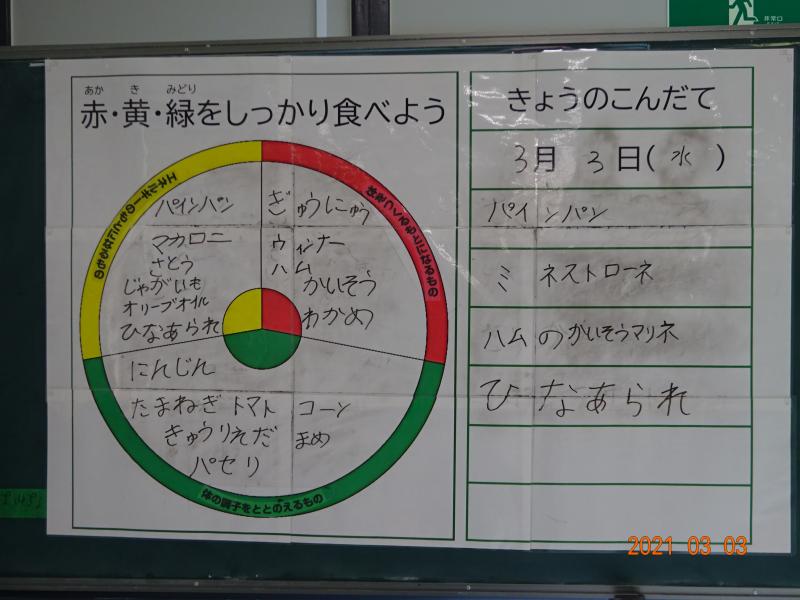 非常口
あか き みどり
赤・黄・緑をしっかり食べよう
エネルギーのもとになるもの
体をつくるもとになるもの
パインパン
マカロニ
さとう
じゃがいも
オリーブオイル
ひなあられ
ぎゅうにゅう
ウィンナー
ハム
かいそう
わかめ
にんじん
たまねぎ トマト
きゅうりえだ
パセリ
コーン
まめ
体の調子をととのえるもの
きょうのこんだて
3月 3日(水)
パインパン
ミネストローネ
ハムのかいそうマリネ
ひなあられ
2021 03 03